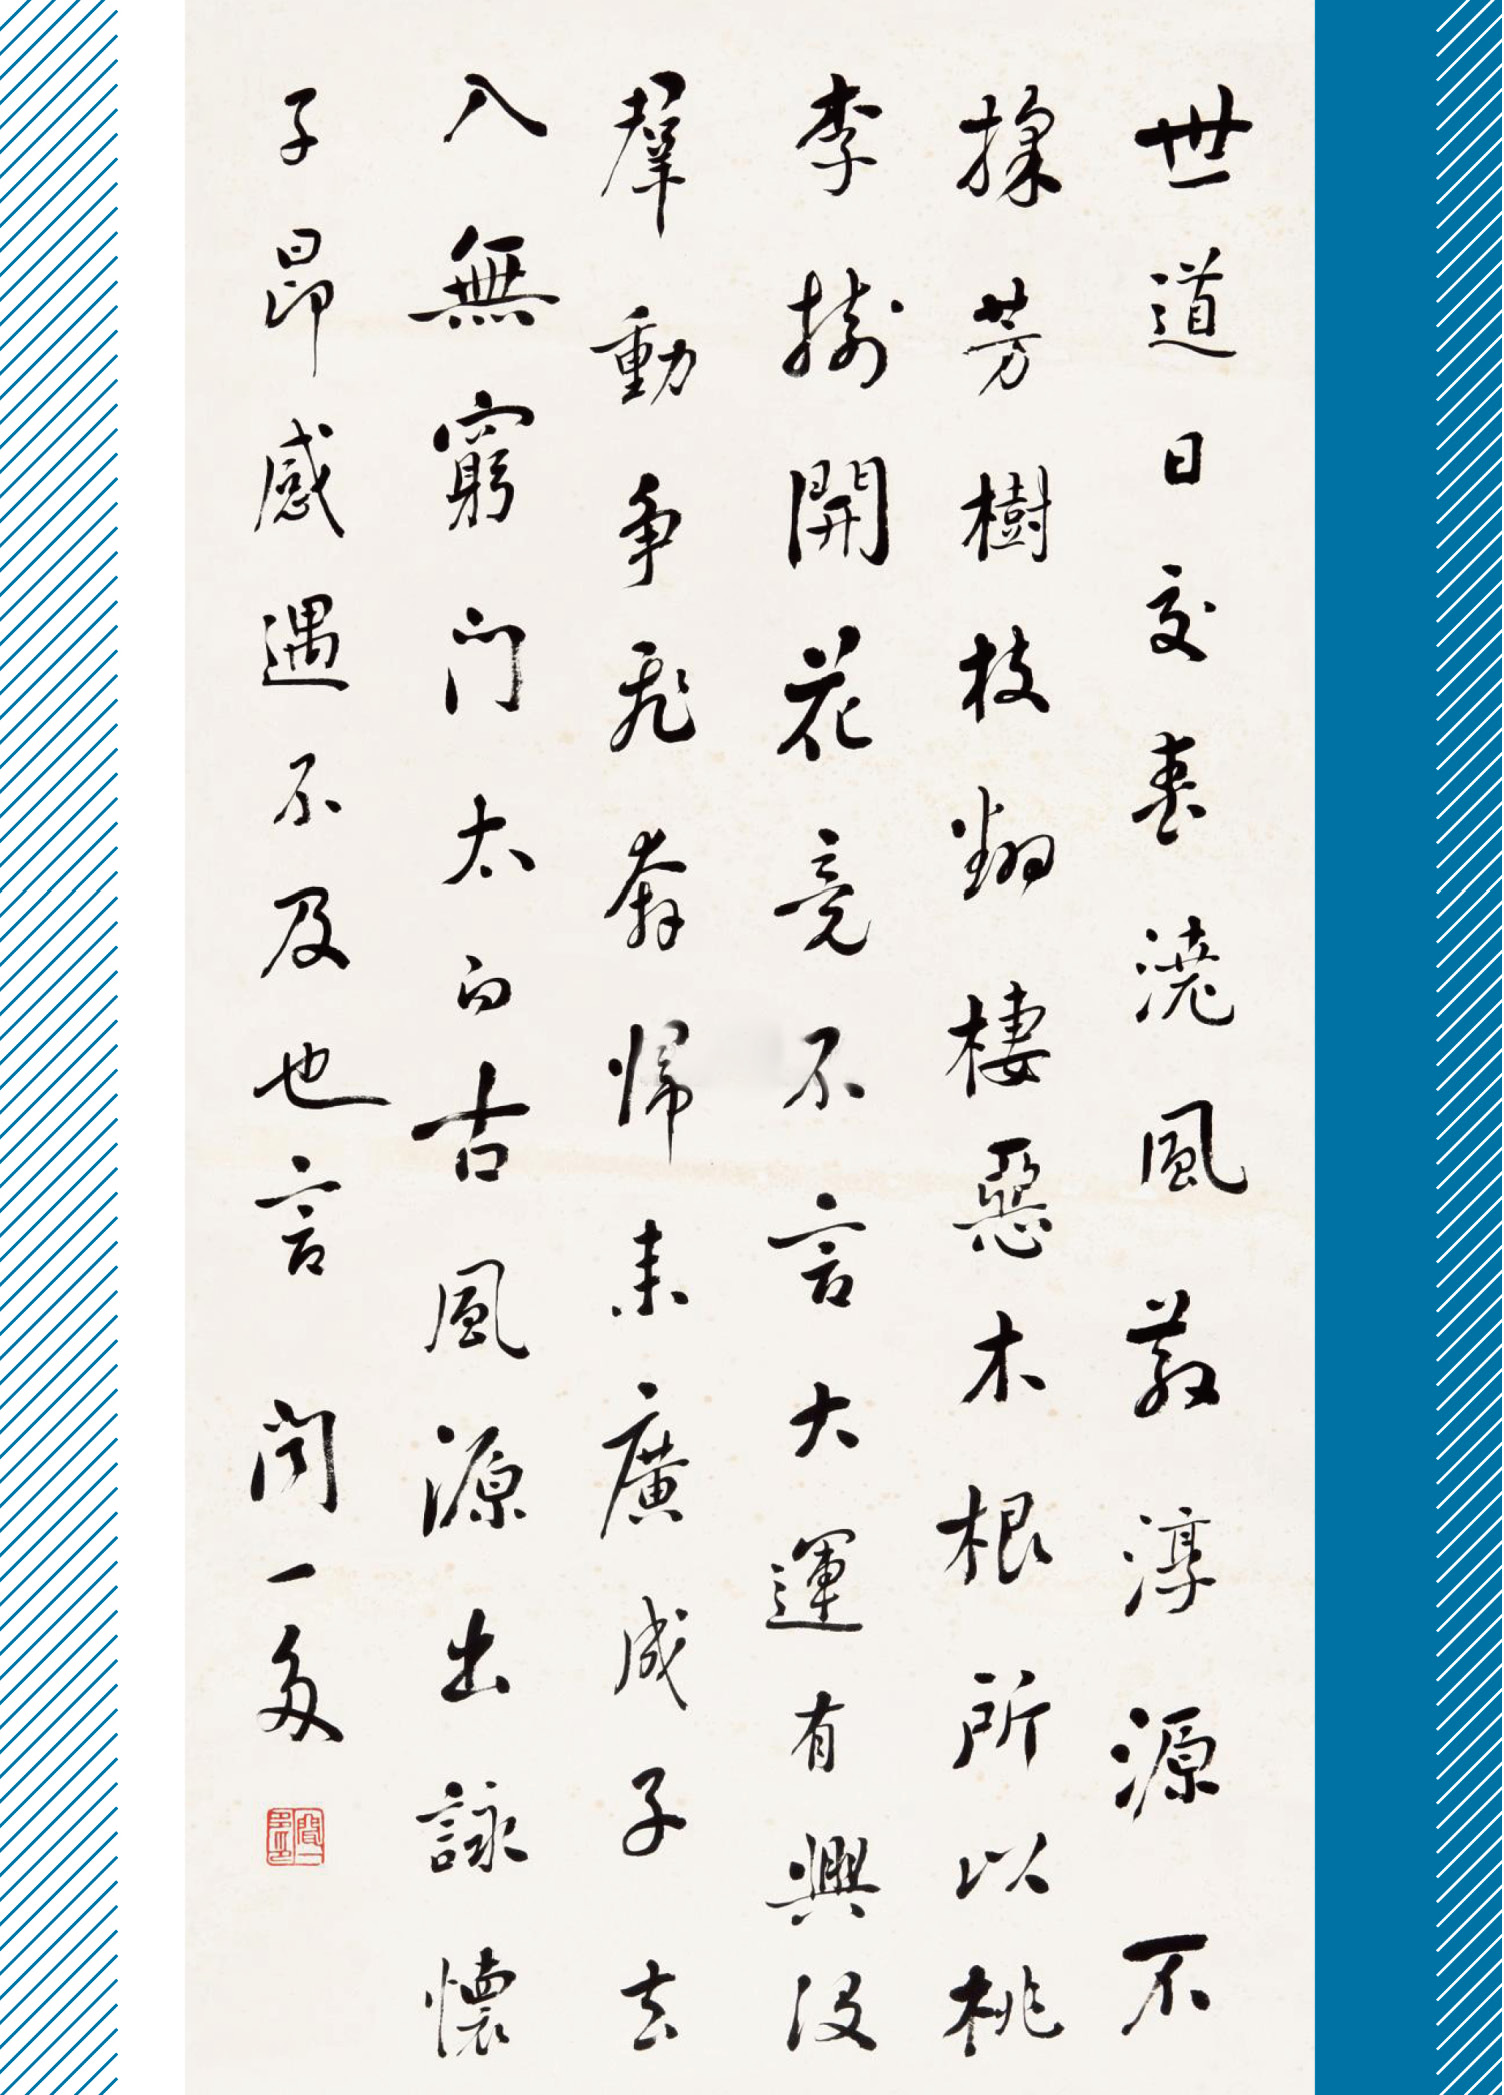 世道日交喪澆風散淳源不
採芳樹枝翻棲惡木根所以桃
李樹開花竟不言大運有興沒
羣動爭飛奔歸來廣成子去
入無窮門太白古風源出詠懷
子昂感遇不及也言 聞一多